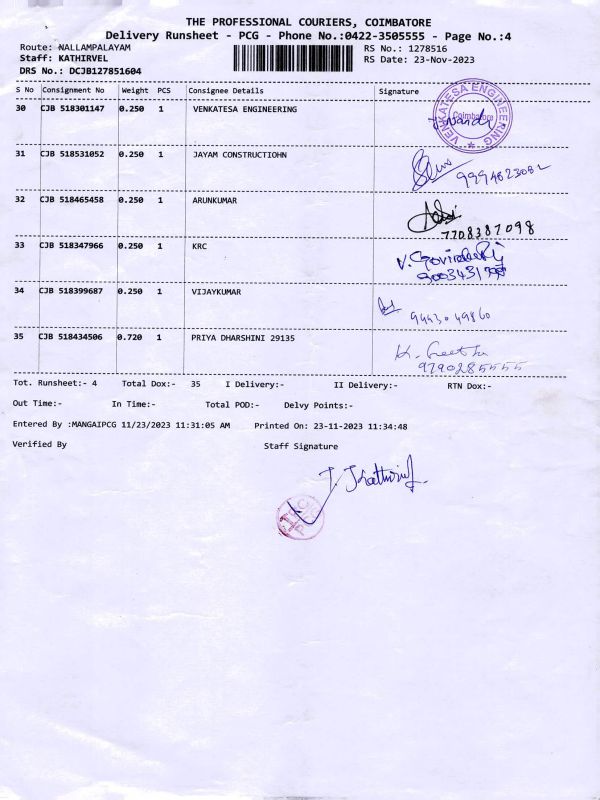 THE PROFESSIONAL COURIERS, COIMBATORE
Delivery Runsheet - PCG - Phone No.:0422-3505555 - Page No.:4
Route: NALLAMPALAYAM RS No.: 1278516
Staff: KATHIRVEL RS Date: 23-Nov-2023
DRS No.: DCJB127851604
S No Consignment No Weight PCS Consignee Details Signature
30 CJB 518301147 0.250 1 VENKATESA ENGINEERING
VENKATESA ENGINEERING
Coimbatore
31 CJB 518531052 0.250 1 JAYAM CONSTRUCTIOHN
32 CJB 518465458 0.250 1 ARUNKUMAR
7708387098
33 CJB 518347966 0.250 1 KRC
34 CJB 518399687 0.250 1 VIJAYKUMAR
9443049860
35 CJB 518434506 0.720 1 PRIYA DHARSHINI 29135
K. Geetha
9790285555
Tot. Runsheet:- 4 Total Dox:- 35 I Delivery:- II Delivery:- RTN Dox:-
Out Time:- In Time:- Total POD:- Delvy Points:-
Entered By :MANGAIPCG 11/23/2023 11:31:05 AM Printed On: 23-11-2023 11:34:48
Verified By Staff Signature
J. Kathirvel